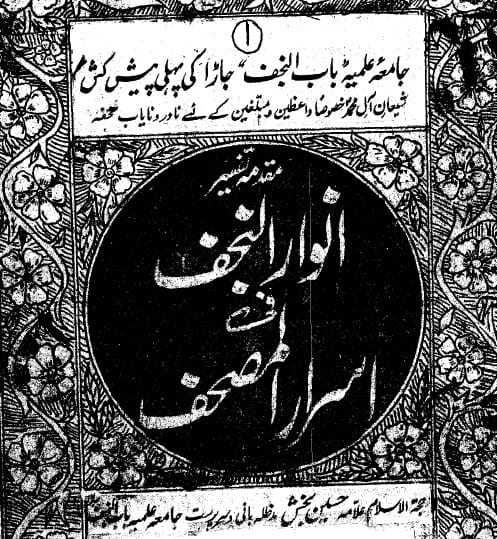 ۱
جامعہ علمیہ "باب النجف" جاڑا کی پہلی پیش کش
شیعان آل محمد خصوصاً واعظین و مبلغین کے لئے نادر و نایاب تحفہ
مقدمہ تفسیر
انوار النجف
فی
اسرار المصحف
حجۃ الاسلام علامہ حسین بخش مدظلہ بانی و سرپرست جامعہ علمیہ باب النجف